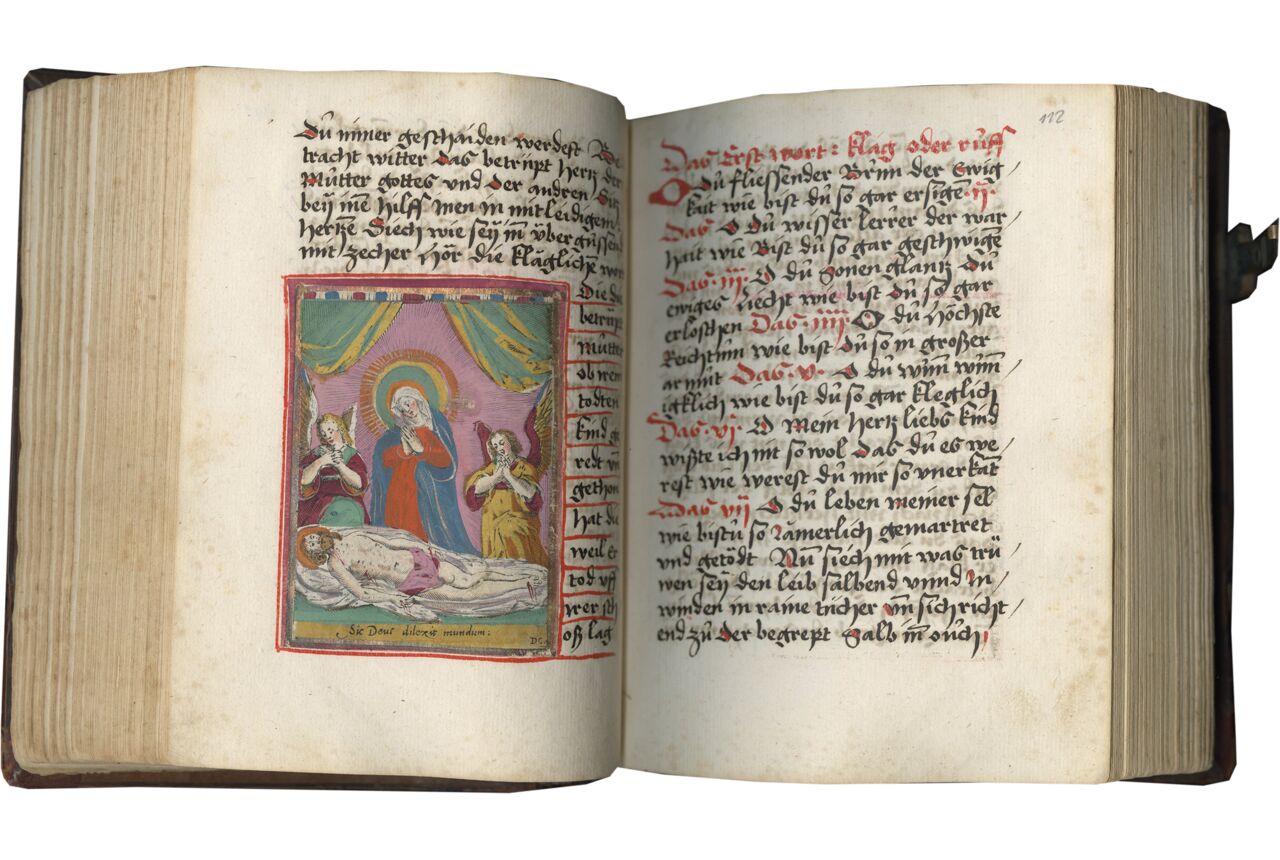 dů nimer geschaiden werdest Be
tracht witter das betrüpt hertz der
Můtter gottes vnd der andren Sitz
beÿ inē hilff inen in mitleidigem
hertzē Siech wie seÿ im̄ übergüssend
mit zecher hör die klaglichē wort
Die
betrüpt
můtter
ob irem
todten
kind ge
redt vn̄
gethon
hat die
weil Er
tod vff
irer sch
oß lag
Sic Deus dilexit mundum:
DC.
112
Das Erst wort: klag oder růff
O Dů fliessender Brun̄ der Ewig
kait wie bist dů so gar ersigen .ij.
Das O Dů wisser lerrer der war
hait wie Bist dů so gar geschwigē
Das .iij. O dů Sonen glantz Dů
ewiges liecht wie bist dů so gar
erloschen Das .iiij. O dů höchste
Reichtum̄ wie bist dů so in großer
armůt Das .v. O dů wun̄ wun̄
igklich wie bist dů so gar kleglich
Das .vj. O mein hertz liebs kind
wißte ich nit so wol Das dů es we
rest wie werest dů mir so vnerkāt
Das vij O dů leben meiner sel
wie bistů so Jämerlich gemartret
vnd getödt Nun̄ siech mit was trü
wen seÿ den leib salbend vnnd in
winden in raine tücher vn̄ sich richt
end zů der begrept Salb im̄ ouch